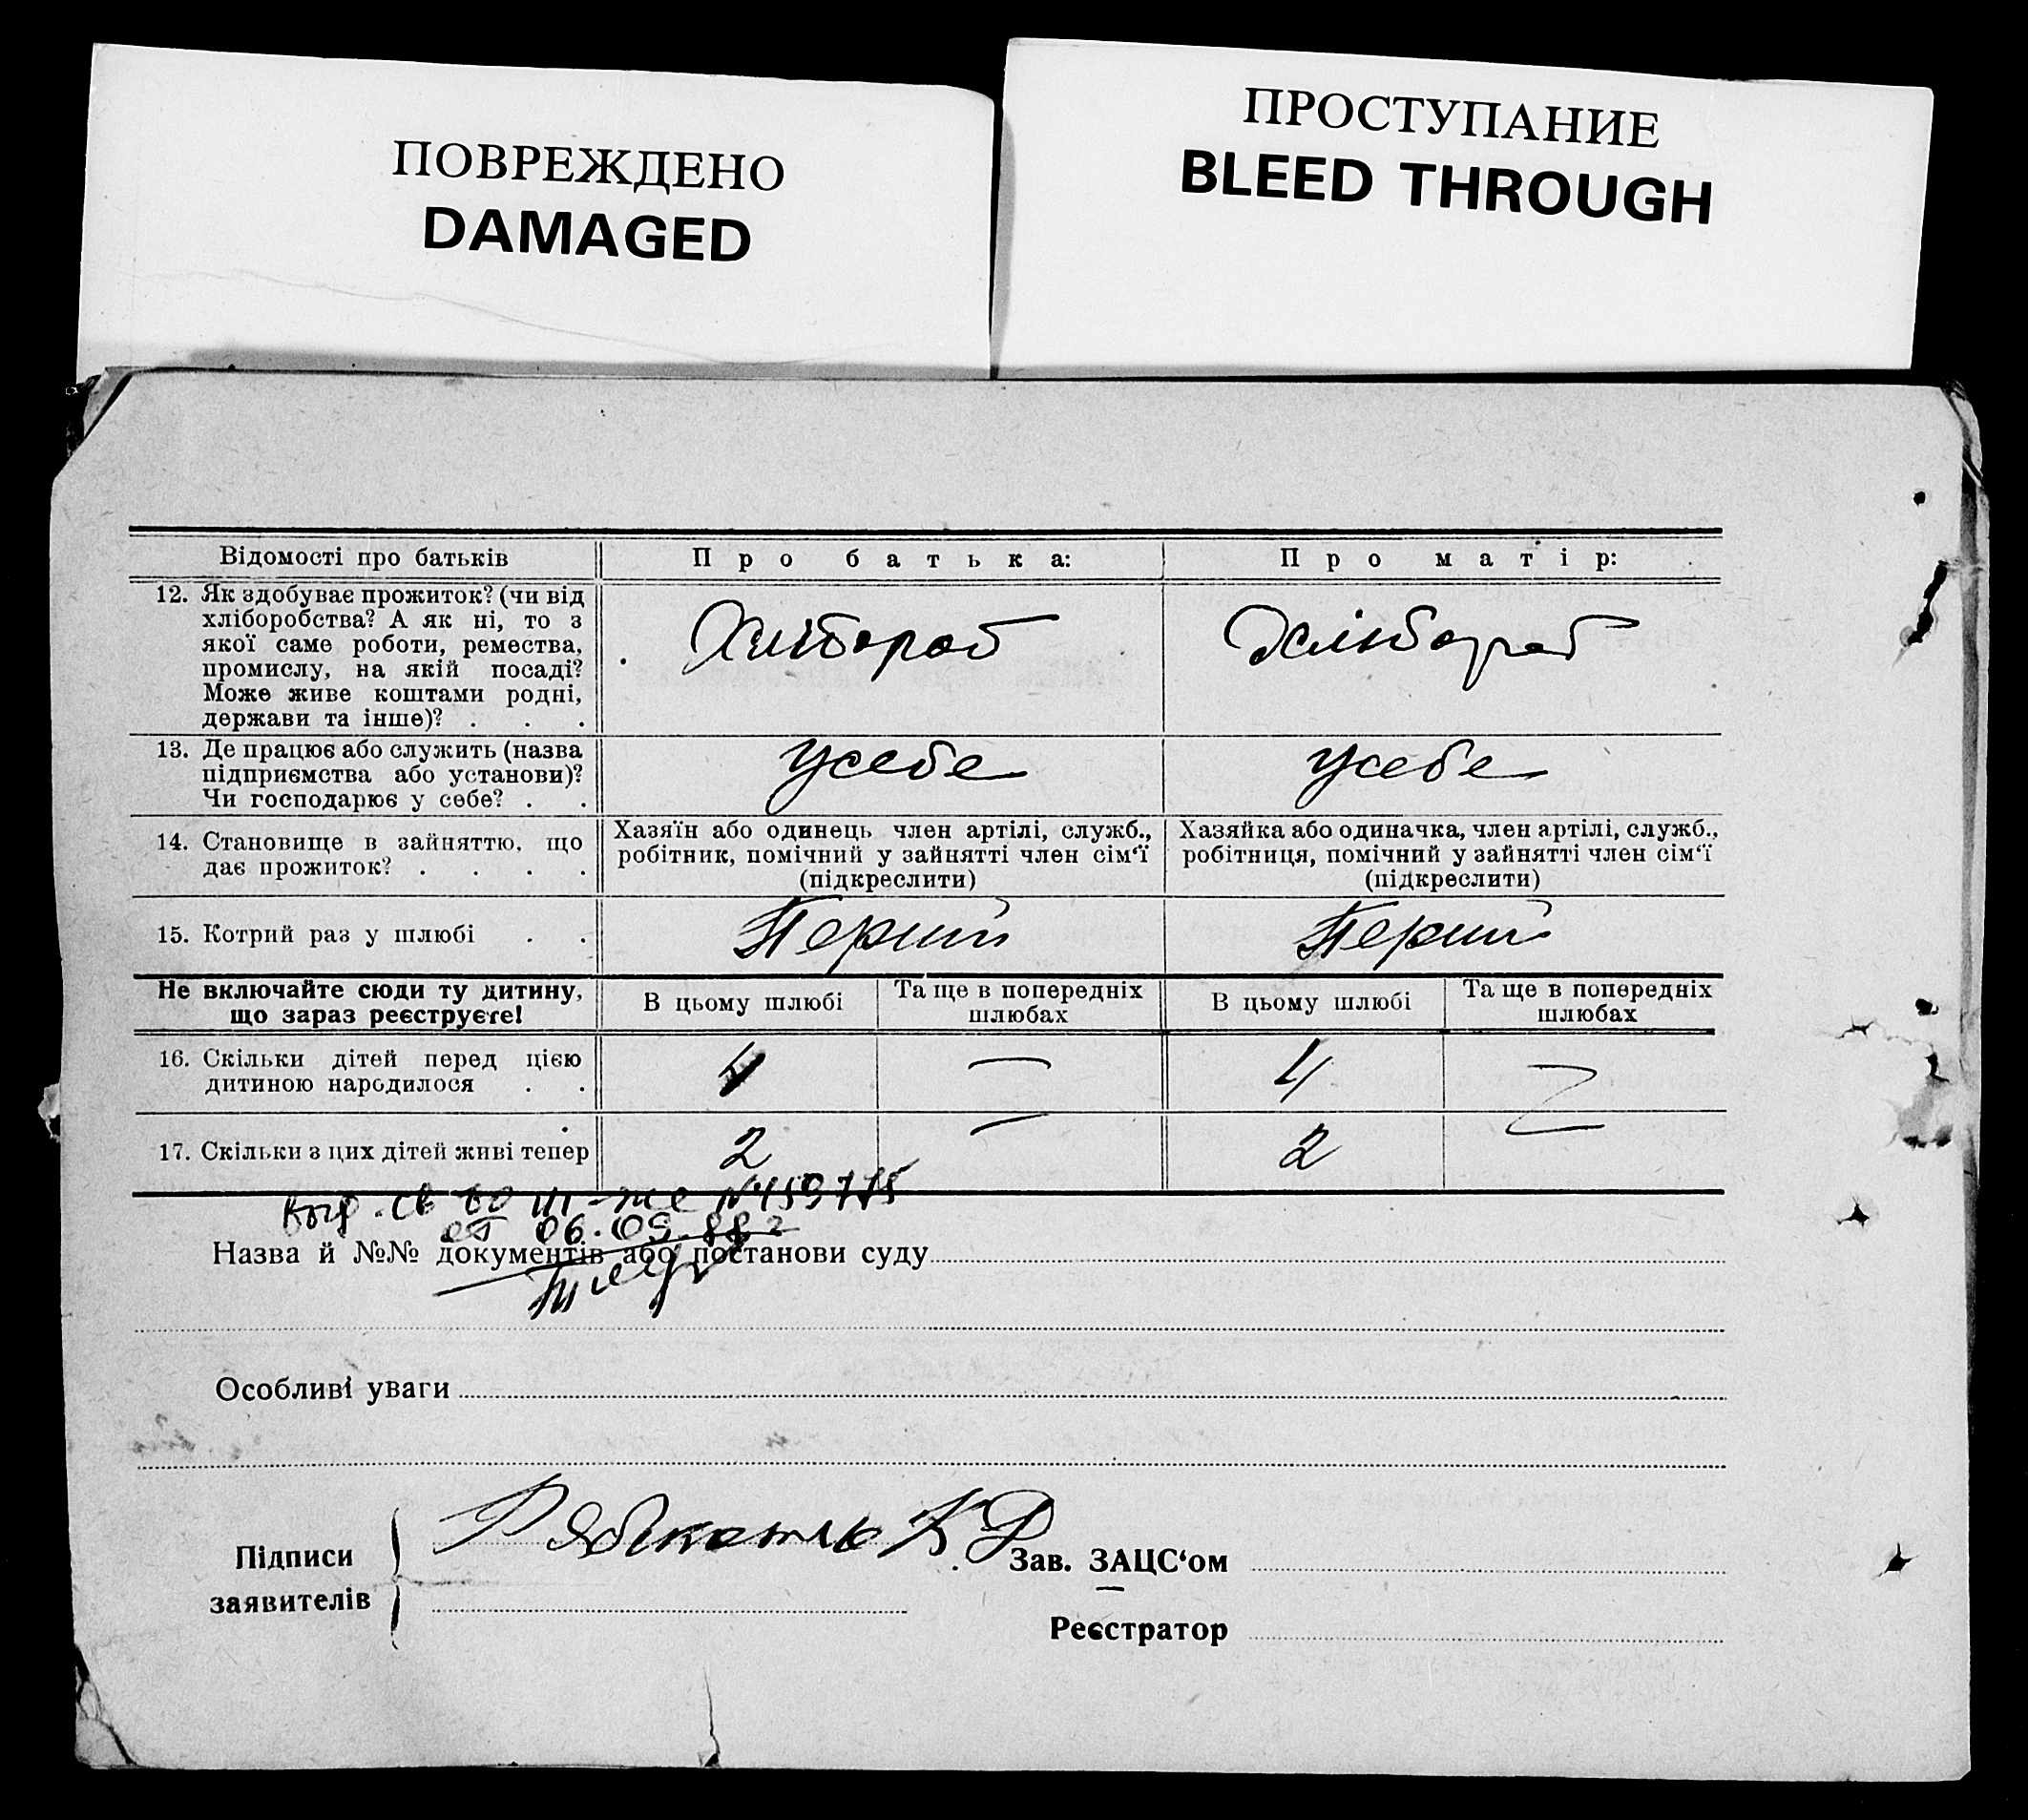 ПОВРЕЖДЕНО
DAMAGED
ПРОСТУПАНИЕ
BLEED THROUGH
Відомості про батьків
Про батька:
Про матір:
12. Як здобуває прожиток? (чи від
хліборобства? А як ні, то з
якої саме роботи, ремества,
промислу, на якій посаді?
Може живе коштами родні,
держави та інше)? . . .
Хлібороб
Хлібороб
13. Де працює або служить (назва
підприємства або установи)?
Чи господарює у себе? . .
усебе
усебе
14. Становище в зайняттю, що
дає прожиток? . . . .
Хазяїн або одинець член артілі, служб.,
робітник, помічний у зайнятті член сім‘ї
(підкреслити)
Хазяйка або одиначка, член артілі, служб.,
робітниця, помічний у зайнятті член сім‘ї
(підкреслити)
15. Котрий раз у шлюбі . .
Перший
Перший
Не включайте сюди ту дитину,
що зараз реєструєте!
В цьому шлюбі
Та ще в попередніх
шлюбах
В цьому шлюбі
Та ще в попередніх
шлюбах
16. Скільки дітей перед цією
дитиною народилося . .
4
—
4
—
17. Скільки з цих дітей живі тепер
2
—
2
—
выд. св-во III-ЖС №459775
от 06.09.88 г
Назва й №№ документів або постанови суду
Особливі уваги
Підписи
заявителів
К Р
Зав. ЗАЦС‘ом
Реєстратор